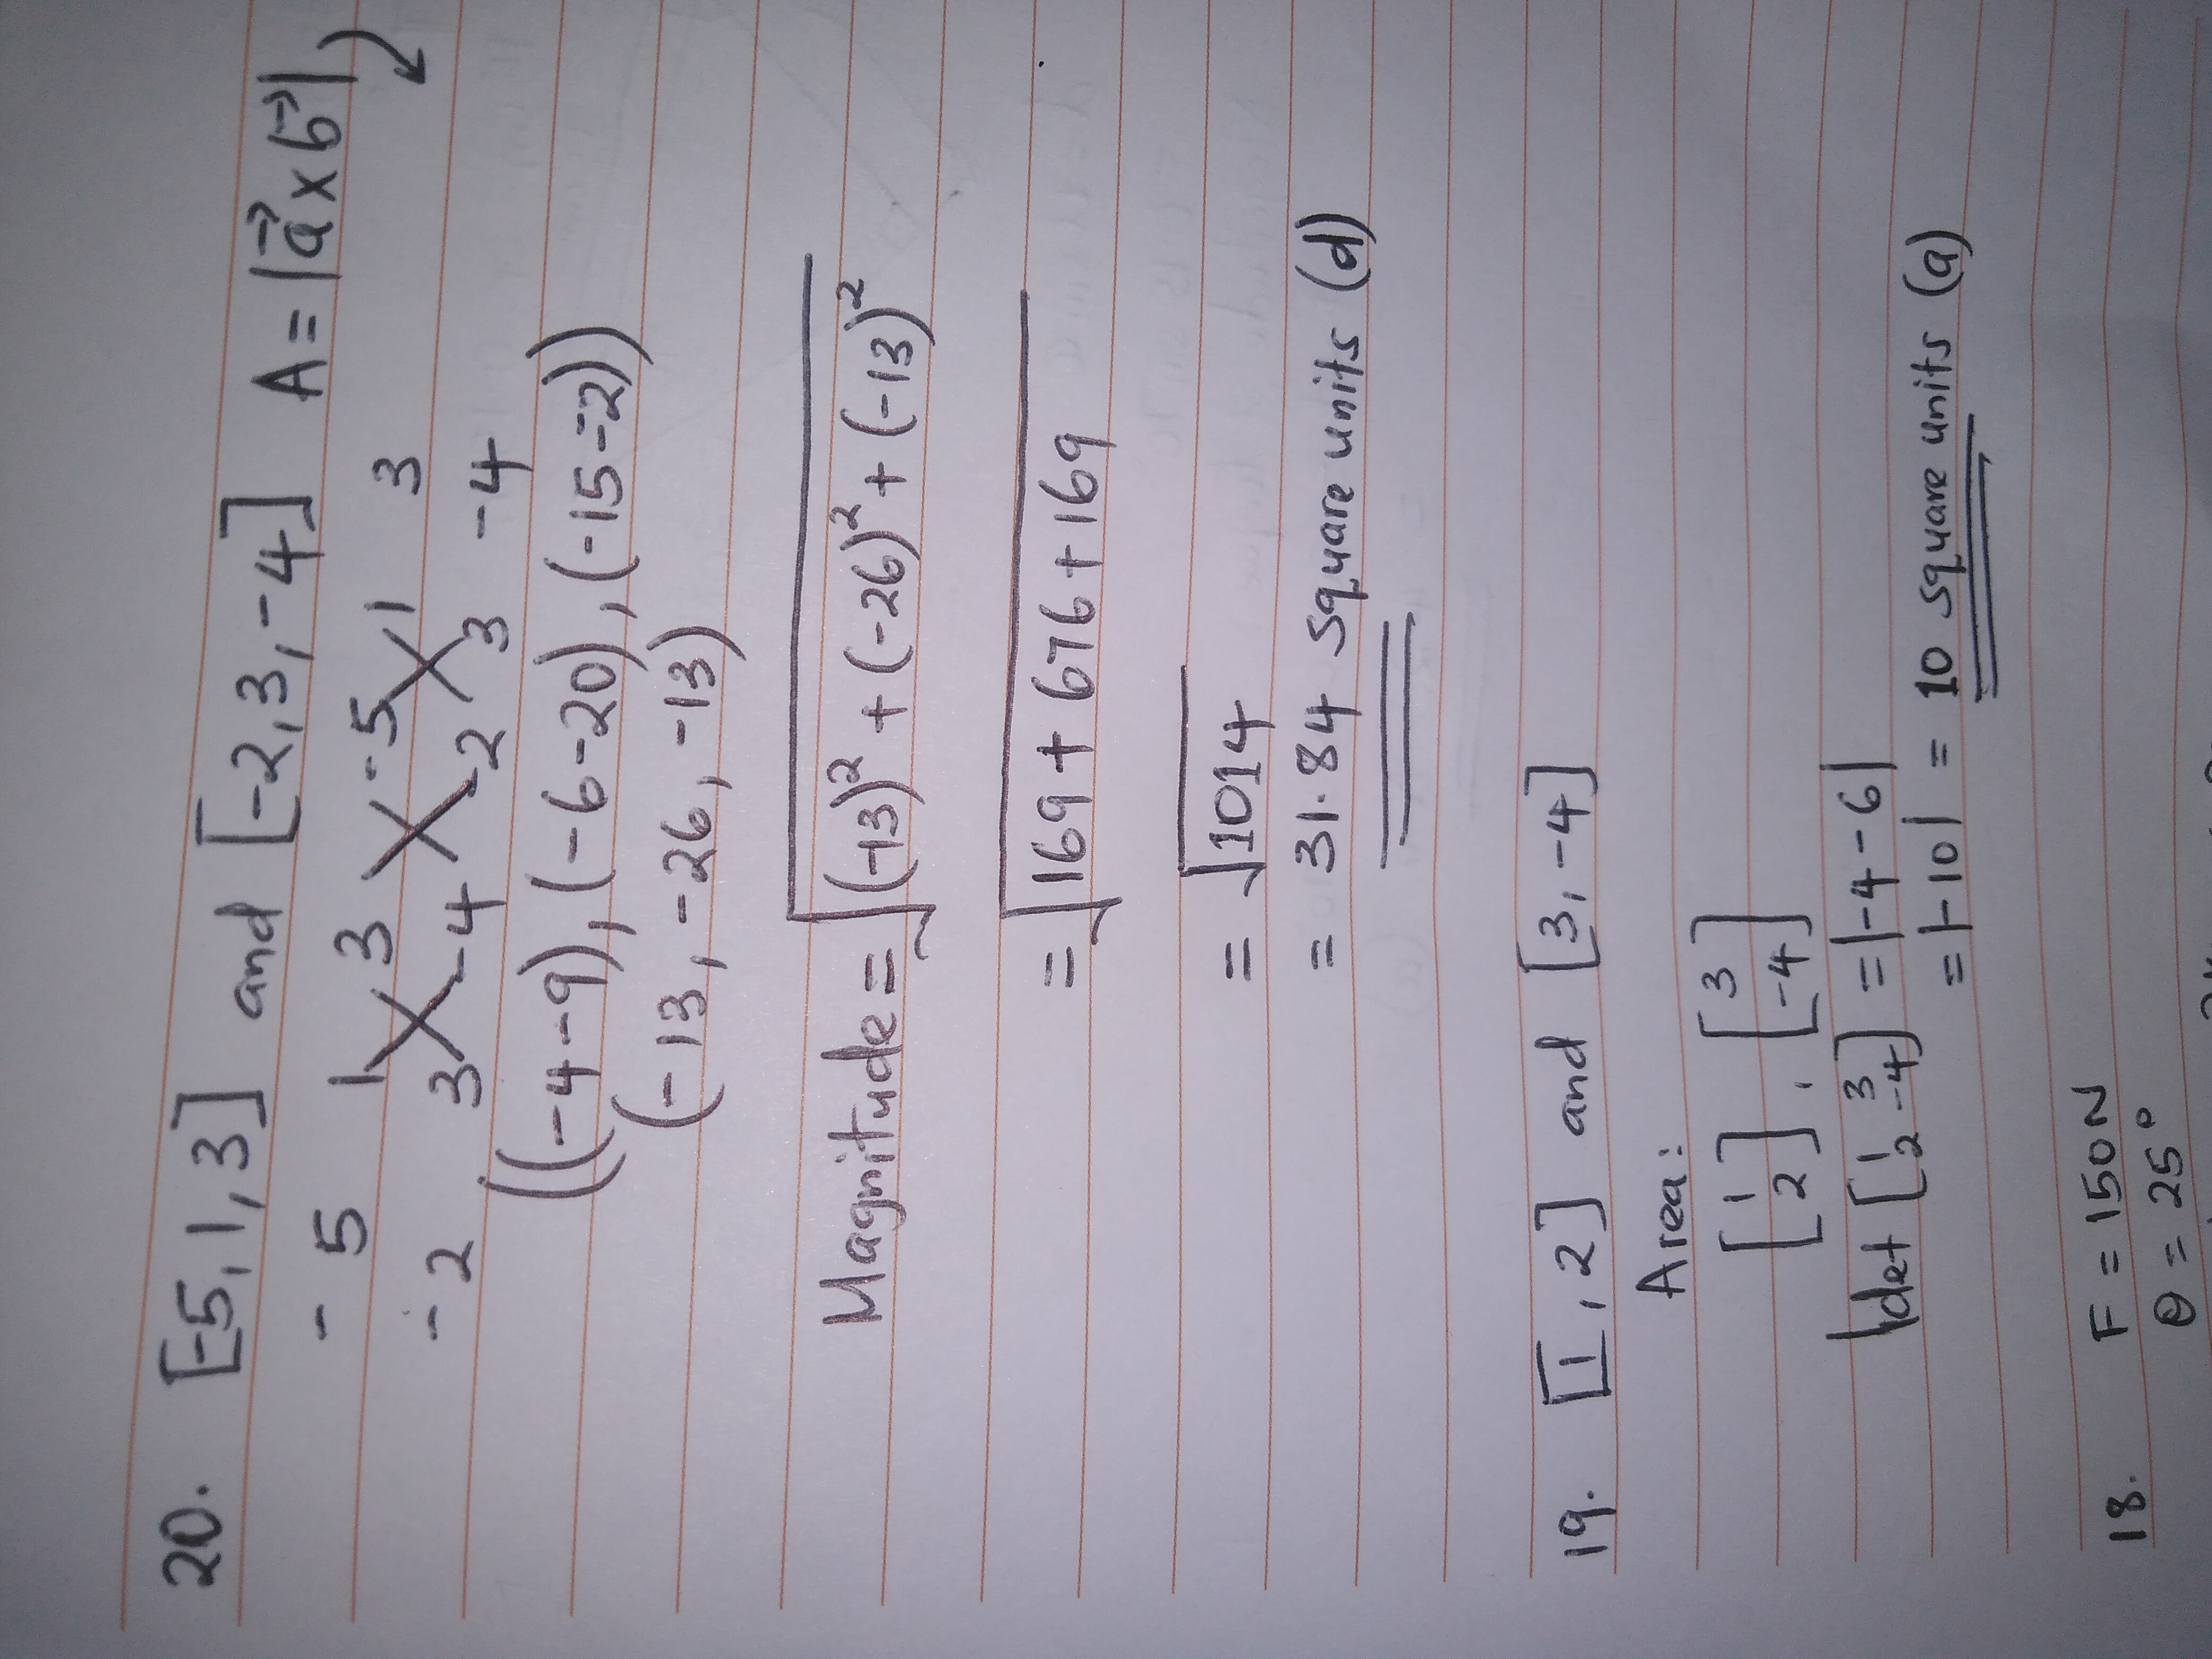 20. [-5,1,3] and [-2,3,-4] A = |a⃗ x b⃗|
- 5 1 3 -5 1 3
- 2 3 -4 -2 3 -4
((-4-9),(-6-20),(-15--2))
(-13,-26,-13)
Magnitude = √(-13)² + (-26)² + (-13)²
= √169 + 676 + 169
= √1014
= 31.84 square units (d)
19. [1,2] and [3,-4]
Area:
[1 2] . [3 -4]
|det [1 3 2 -4] = |-4 - 6|
= |-10| = 10 square units (a)
18. F = 150N
θ = 25°